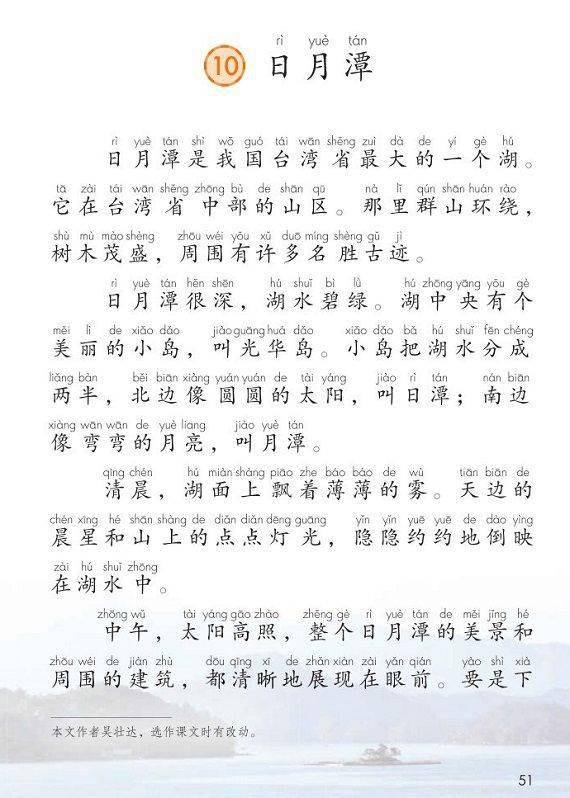 rì yuè tán
10 日月潭
rì yuè tán shì wǒ guó tái wān shěng zuì dà de yí gè hú
日月潭是我国台湾省最大的一个湖。
tā zài tái wān shěng zhōng bù de shān qū nà lǐ qún shān huán rào
它在台湾省中部的山区。那里群山环绕，
shù mù mào shèng zhōu wéi yǒu xǔ duō míng shèng gǔ jì
树木茂盛，周围有许多名胜古迹。
rì yuè tán hěn shēn hú shuǐ bì lǜ hú zhōng yāng yǒu gè
日月潭很深，湖水碧绿。湖中央有个
měi lì de xiǎo dǎo jiào guāng huá dǎo xiǎo dǎo bǎ hú shuǐ fēn chéng
美丽的小岛，叫光华岛。小岛把湖水分成
liǎng bàn běi biān xiàng yuán yuán de tài yáng jiào rì tán nán biān
两半，北边像圆圆的太阳，叫日潭；南边
xiàng wān wān de yuè liang jiào yuè tán
像弯弯的月亮，叫月潭。
qīng chén hú miàn shàng piāo zhe báo báo de wù tiān biān de
清晨，湖面上飘着薄薄的雾。天边的
chén xīng hé shān shàng de diǎn diǎn dēng guāng yǐn yǐn yuē yuē de dào yìng
晨星和山上的点点灯光，隐隐约约地倒映
zài hú shuǐ zhōng
在湖水中。
zhōng wǔ tài yáng gāo zhào zhěng gè rì yuè tán de měi jǐng hé
中午，太阳高照，整个日月潭的美景和
zhōu wéi de jiàn zhù dōu qīng xī de zhǎn xiàn zài yǎn qián yào shì xià
周围的建筑，都清晰地展现在眼前。要是下
本文作者吴壮达，选作课文时有改动。
51